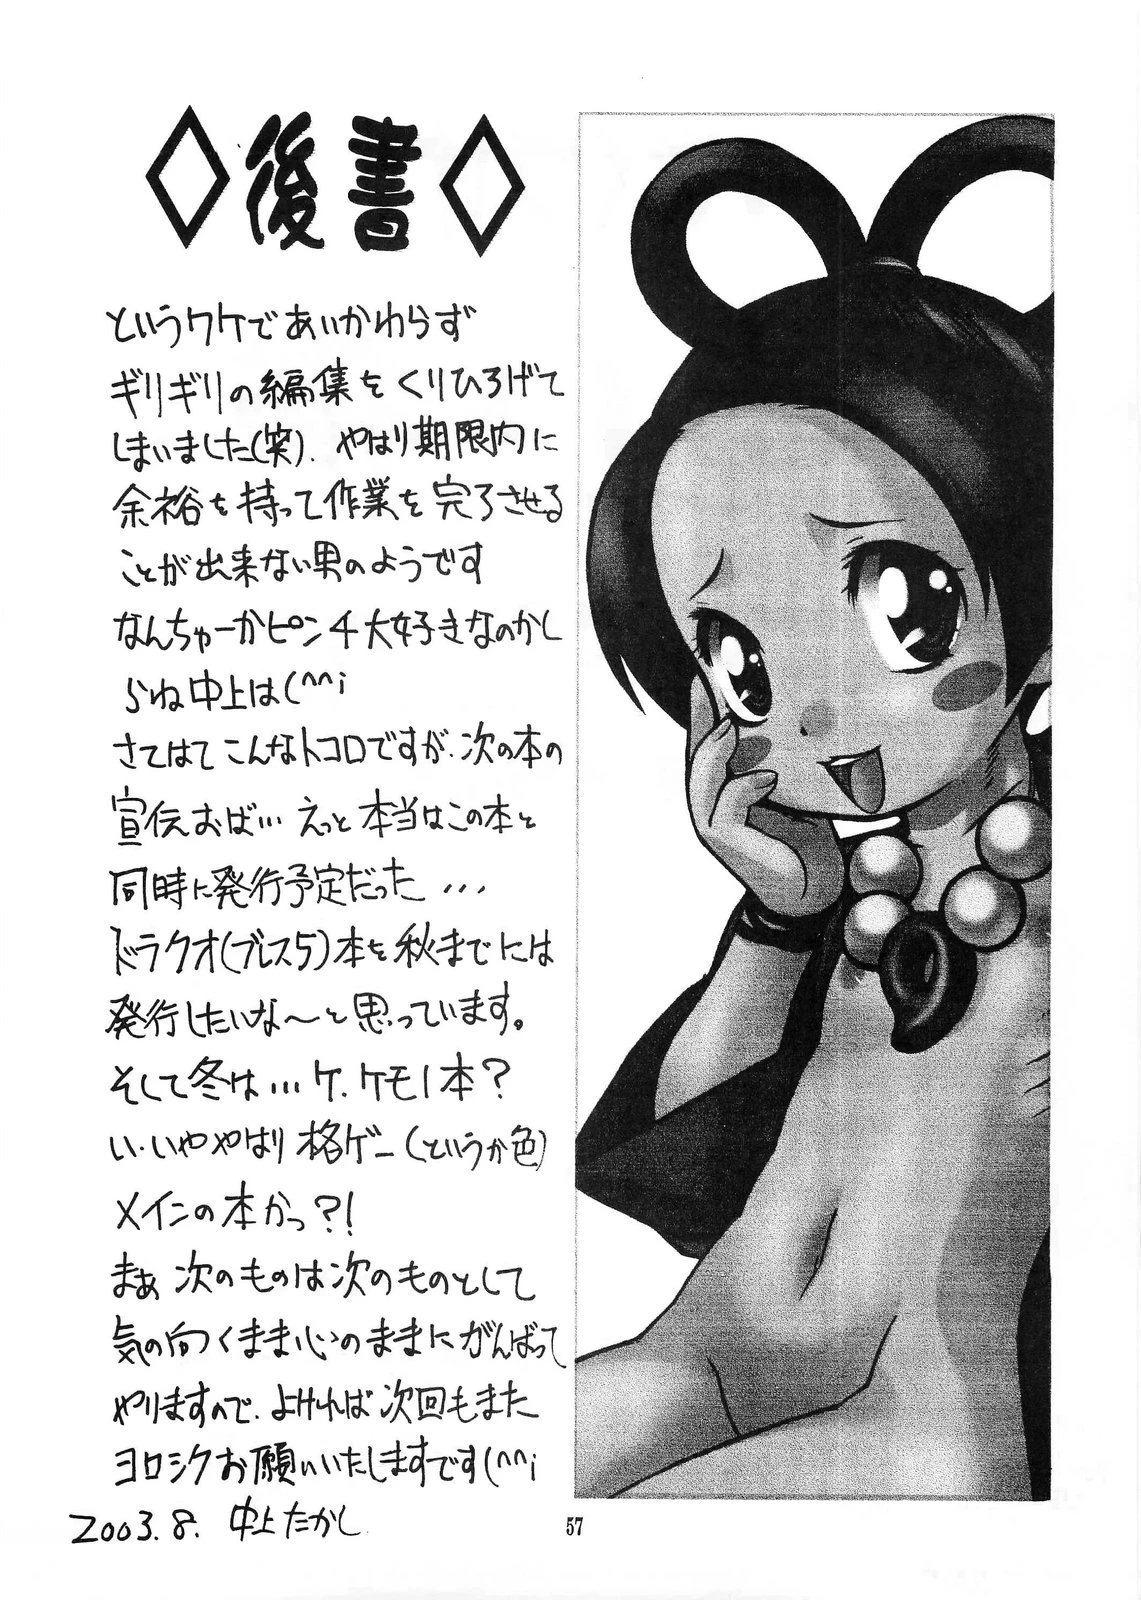 ◇後書◇
というワケであいかわらず
ギリギリの編集をくりひろげて
しまいました(笑). やはり期限内に
余裕を持って作業を完了させる
ことが出来ない男のようです
なんちゅーかピンチ大好きなのかし
らね中上は(^^;
さてはてこんなトコロですが、次の本の
宣伝おば… えっと本当はこの本と
同時に発行予定だった...
ドラクオ(ブレス5)本を秋までには
発行したいな〜と思っています。
そして冬は…ケ、ケモノ本?
い、いややはり格ゲー(というか色)
メインの本かっ?!
まぁ次のものは次のものとして
気の向くまま心のままにがんばって
やりますので、よければ次回もまた
ヨロシクお願いいたしますです(^^;
2003.8. 中上たかし
57